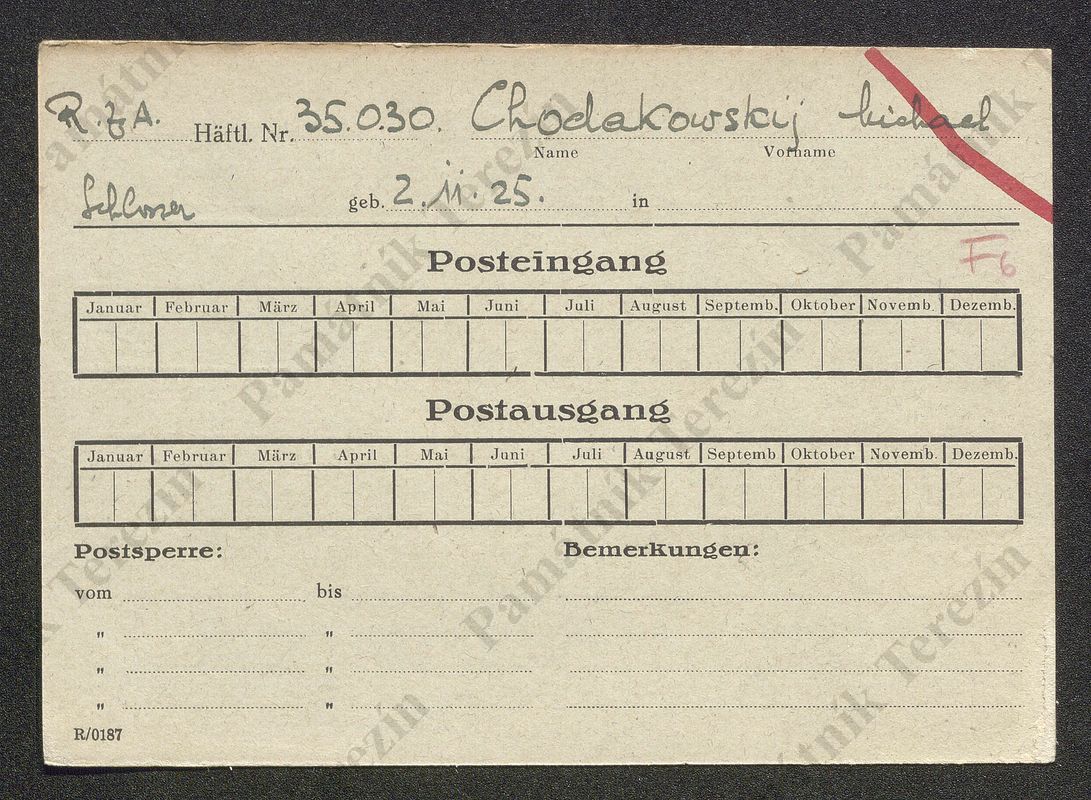 R.z.A. Häftl. Nr. 35.030. Chodakowskij Michael
Name Vorname
Schlosser geb. 2.11.25. in
F6
Posteingang
Januar Februar März April Mai Juni Juli August Septemb. Oktober Novemb. Dezemb.
Postausgang
Januar Februar März April Mai Juni Juli August Septemb Oktober Novemb. Dezemb.
Postsperre: Bemerkungen:
vom bis
" "
" "
" "
R/0187
Památník Terezín